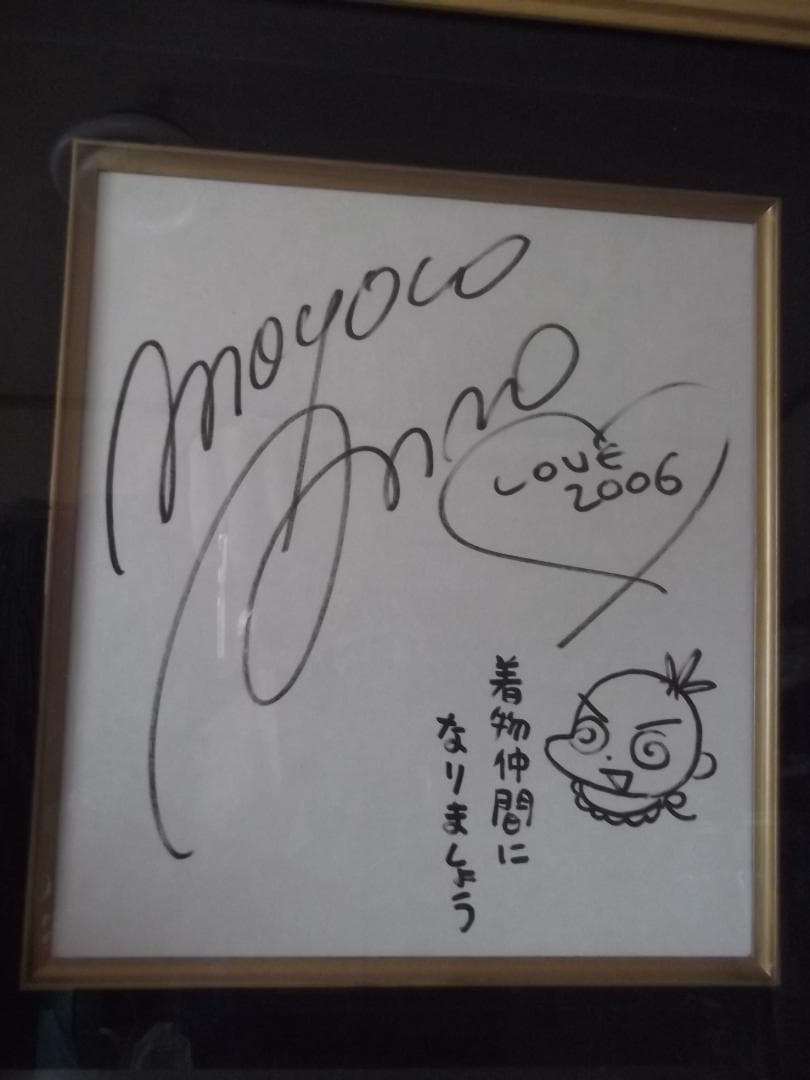 moyoco
Anno
LOVE
2006
着物仲間に
なりましょう